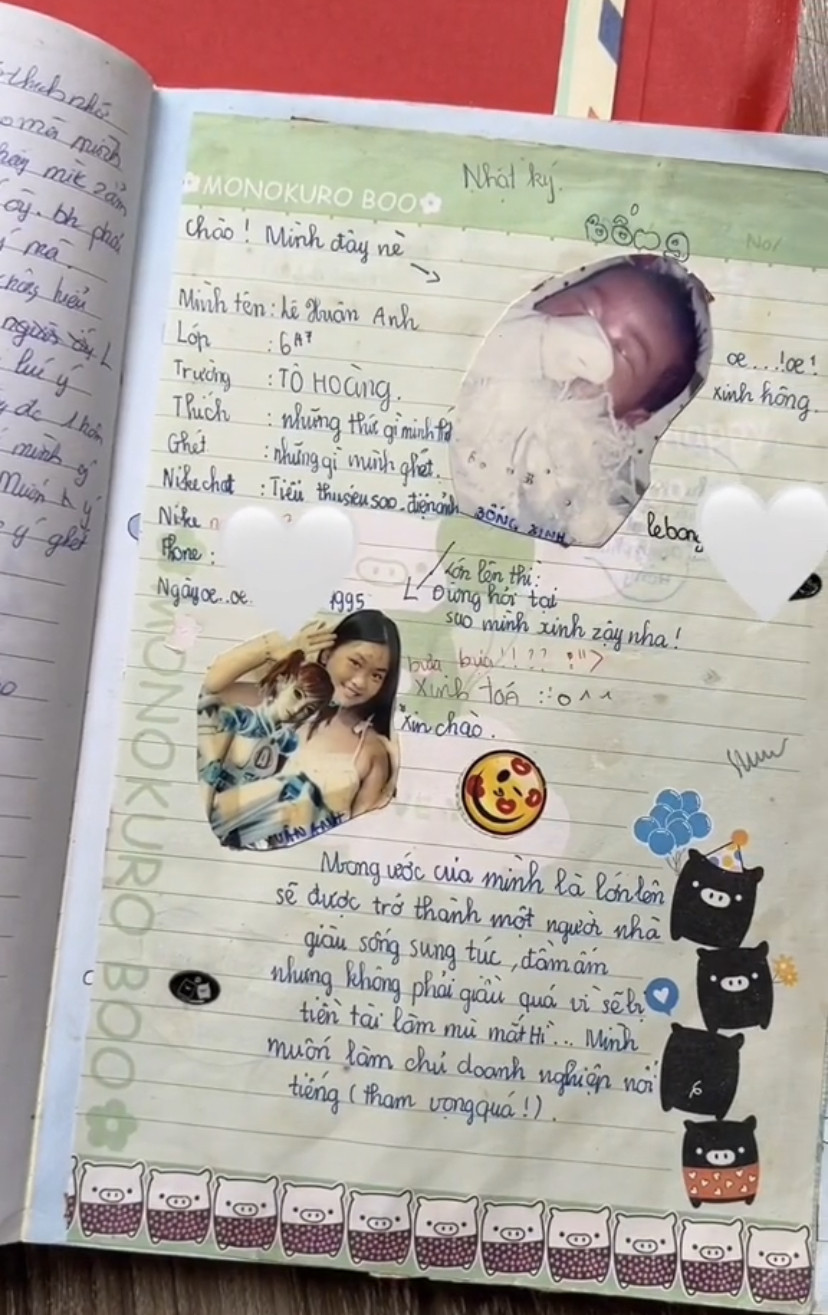 MONOKURO BOO
Nhật ký.
BỐNG
No/
Chào! Mình đây nè
Mình tên: Lê Xuân Anh
Lớp : 6A7
Trường : TÔ HOàng.
Thích : những thức gì mình thí
Ghét : những gì mình ghét.
Nike chat : Tiểu thư siêu sao. điện ảnh
Nike
Phone :
Ngày oe..oe. 1995
oe...!oe!
xinh hông.
BỐNG XINH
lebong
Lớn lên thì:
Đừng hỏi tại
sao mình xinh zậy nha!
bừa bựa!!??
Xinh toá ::o^^
Xin chào.
XUÂN ANH
Mong ước của mình là lớn lên
sẽ được trở thành một người nhà
giàu sống sung túc, đầm ấm
nhưng không phải giàu quá vì sẽ bị
tiền tài làm mù mắt Hì... Mình
muốn làm chủ doanh nghiệp nổi
tiếng (tham vọng quá!).
MONOKURO BOO
mình
hay mik
phải
mà.
hiểu
người ấy
lưu ý
mình
Muốn
ý ghét